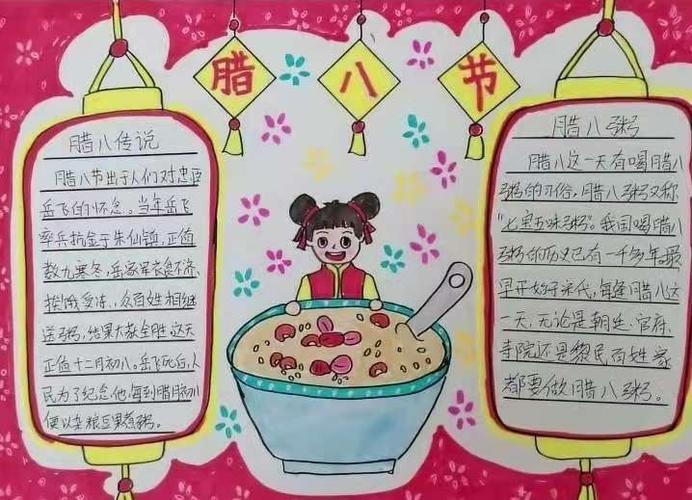 腊八节
腊八传说
腊八节出于人们对忠臣
岳飞的怀念。当年岳飞
率兵抗金于朱仙镇,正值
数九寒冬,岳家军衣食不济、
挨饿受冻,众百姓相继
送粥,结果大败全胜,这天
正值十二月初八。岳飞死后,人
民为了纪念他,每到腊月初八
便以杂粮豆果煮粥。
腊八粥
腊八这一天有喝腊八
粥的习俗,腊八粥又称
“七宝五味粥”。我国喝腊八
粥的历史已有一千多年。最
早开始于宋代,每逢腊八这
一天,无论是朝廷、官府、
寺院还是黎民百姓家
都要做腊八粥。